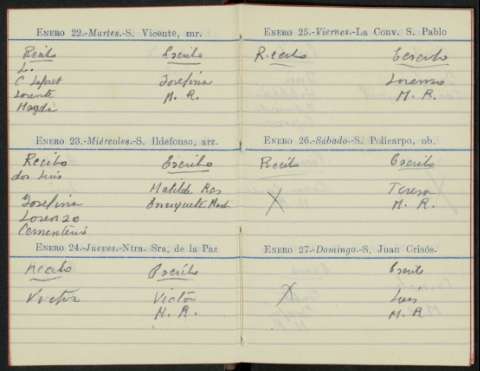 ENERO 22.-Martes.-S. Vicente, mr.
Recibo Escribo
L.. Josefina
C. M. R.
Lorente
Magda
ENERO 23.-Miércoles.-S. Ildefonso, arz.
Recibo Escribo
dos Luis
Matilde Ras
Josefina
Lorenzo
Cementerio
ENERO 24.-Jueves.-Ntra. Sra. de la Paz
Recibo Escribo
Victor Victor
M. R.
ENERO 25.-Viernes.-La Conv. S. Pablo
Recibo Escribo
Lorenzo
M. R.
ENERO 26.-Sábado.-S. Policarpo, ob.
Recibo Escribo
X Teresa
M. R.
ENERO 27.-Domingo.-S. Juan Crisós.
Escribo
X Luis
M. R